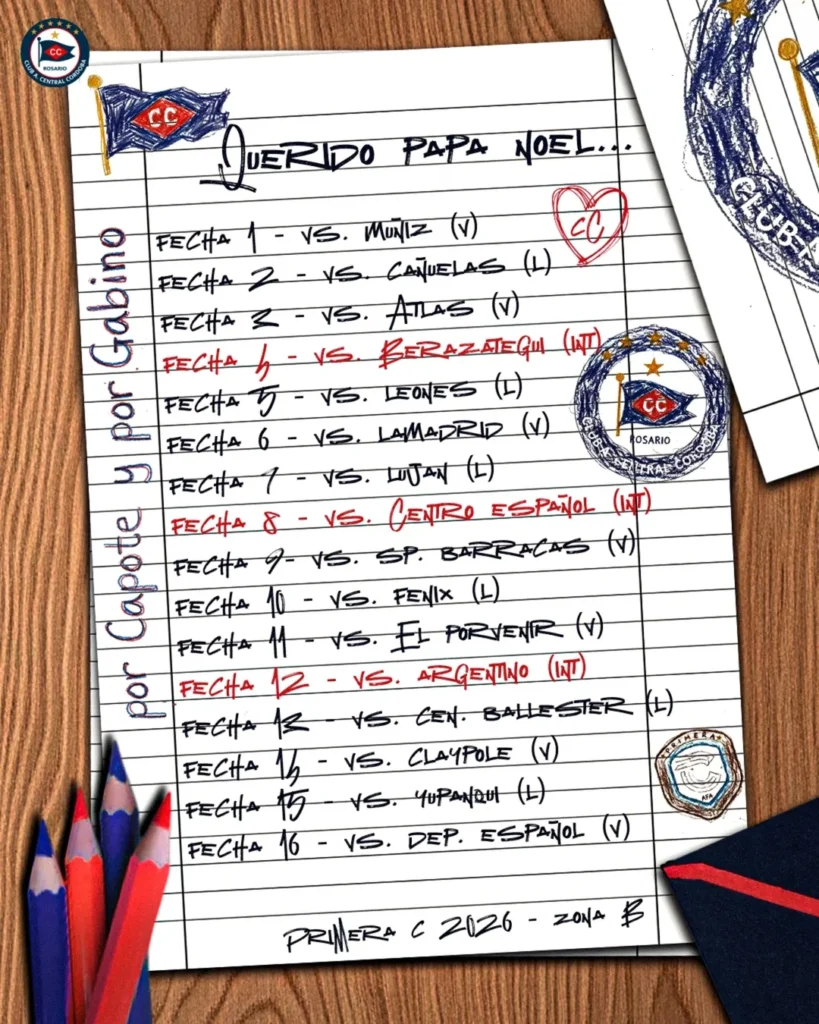 CC
ROSARIO
CLUB A. CENTRAL CORDOBA
CC
QUERIDO PAPA NOEL...
CC
FECHA 1 - VS. MUÑIZ (V)
FECHA 2 - VS. CAÑUELAS (L)
FECHA 3 - VS. ATLAS (V)
FECHA 4 - VS. BERAZATEGUI (INT)
FECHA 5 - VS. LEONES (L)
FECHA 6 - VS. LAMADRID (V)
FECHA 7 - VS. LUJAN (L)
FECHA 8 - VS. CENTRO ESPAÑOL (INT)
FECHA 9 - VS. SP. BARRACAS (V)
FECHA 10 - VS. FENIX (L)
FECHA 11 - VS. EL PORVENIR (V)
FECHA 12 - VS. ARGENTINO (INT)
FECHA 13 - VS. CEN. BALLESTER (L)
FECHA 14 - VS. CLAYPOLE (V)
FECHA 15 - VS. YUPANQUI (L)
FECHA 16 - VS. DEP. ESPAÑOL (V)
PRIMERA C 2026 - ZONA B
por Capote y por Gabino
CC
ROSARIO
CLUB A. CENTRAL CORDOBA
PRIMERA
C
AFA
CLUB A